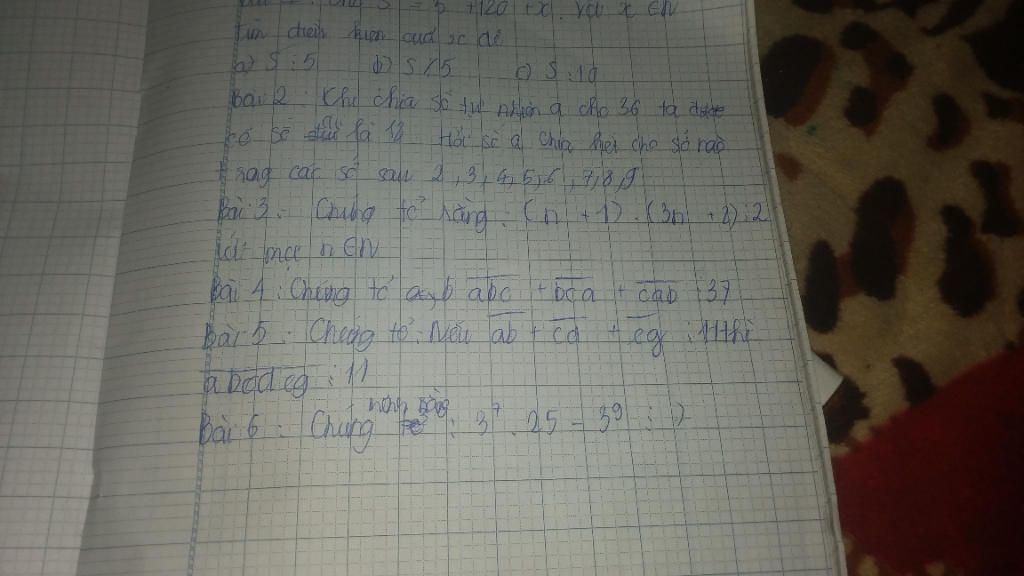 S = 5 + 120 + x. Với x ∈ N
Tìm điều kiện của x để
a) S ⋮ 5 b) S ⋮̸ 5 c) S ⋮ 10
Bài 2: Khi chia số tự nhiên a cho 36 ta
có số dư là 12 Hỏi số a chia hết cho số nào
trog các số sau 2, 3, 4, 5, 6, 7, 8, 9
Bài 3: Chứng tỏ rằng: (n + 1). (3n + 2) ⋮ 2
với mọi n ∈ N
Bài 4: Chứng tỏ abc + bca + cab ⋮ 37
Bài 5: Chứng tỏ: Nếu ab + cd + eg ⋮ 11 thì
abcdeg ⋮ 11
Bài 6: Chứng minh rằng: 3⁷. 25 - 3⁹ ⋮